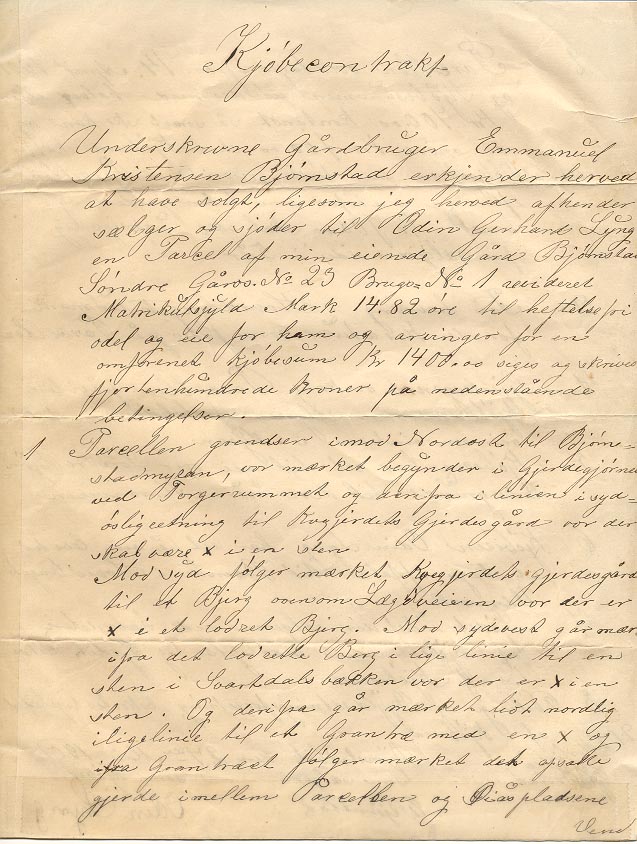 Kjøbecontrakt
Underskrevne Gårdbruger Emmanuel
Kristensen Bjørnstad erkjender herved
at have solgt, ligesom jeg herved afhender
sælger og sjøder til Odin Gerhard Lyng
en Parcel af min eiende Gård Bjørnstad
Søndre Gårds. No 23 Brugs- No 1 revideret
Matrikulsjyld Mark 14.82 öre til heftelsefri
odel og eie for ham og arvinger for en
omforenet Kjøbesum Kr 1400.00 siges og skrives
fjortenhundrede Kroner på nedenstående
betingelser.
1 Parcellen grendser imod Nordost til Bjørn-
stadmyran, vor mærket begynder i Gjerdegjørnet
ved Torgerrummet og derifra i linien i syd-
östligretning til Kvgjerdets Gjerdesgård vor der
skal være x i en sten
Mod syd følger mærket Kvegjerdets gjerdesgård
til et Bjerg ovenom Lægdveien vor der er
x i et lodret Bjerg. Mod sydvest går mær
ifra det lodrette Berg i lige linie til en
sten i Svartdalsbækken vor der er x i en
sten. Og derifra går mærket lidt nordlig
i ligelinie til et Grantræ med en x og
ifra Grantræet følger mærket det opsatte
gjerde imellem Parcellen og Diåspladsene
Vend